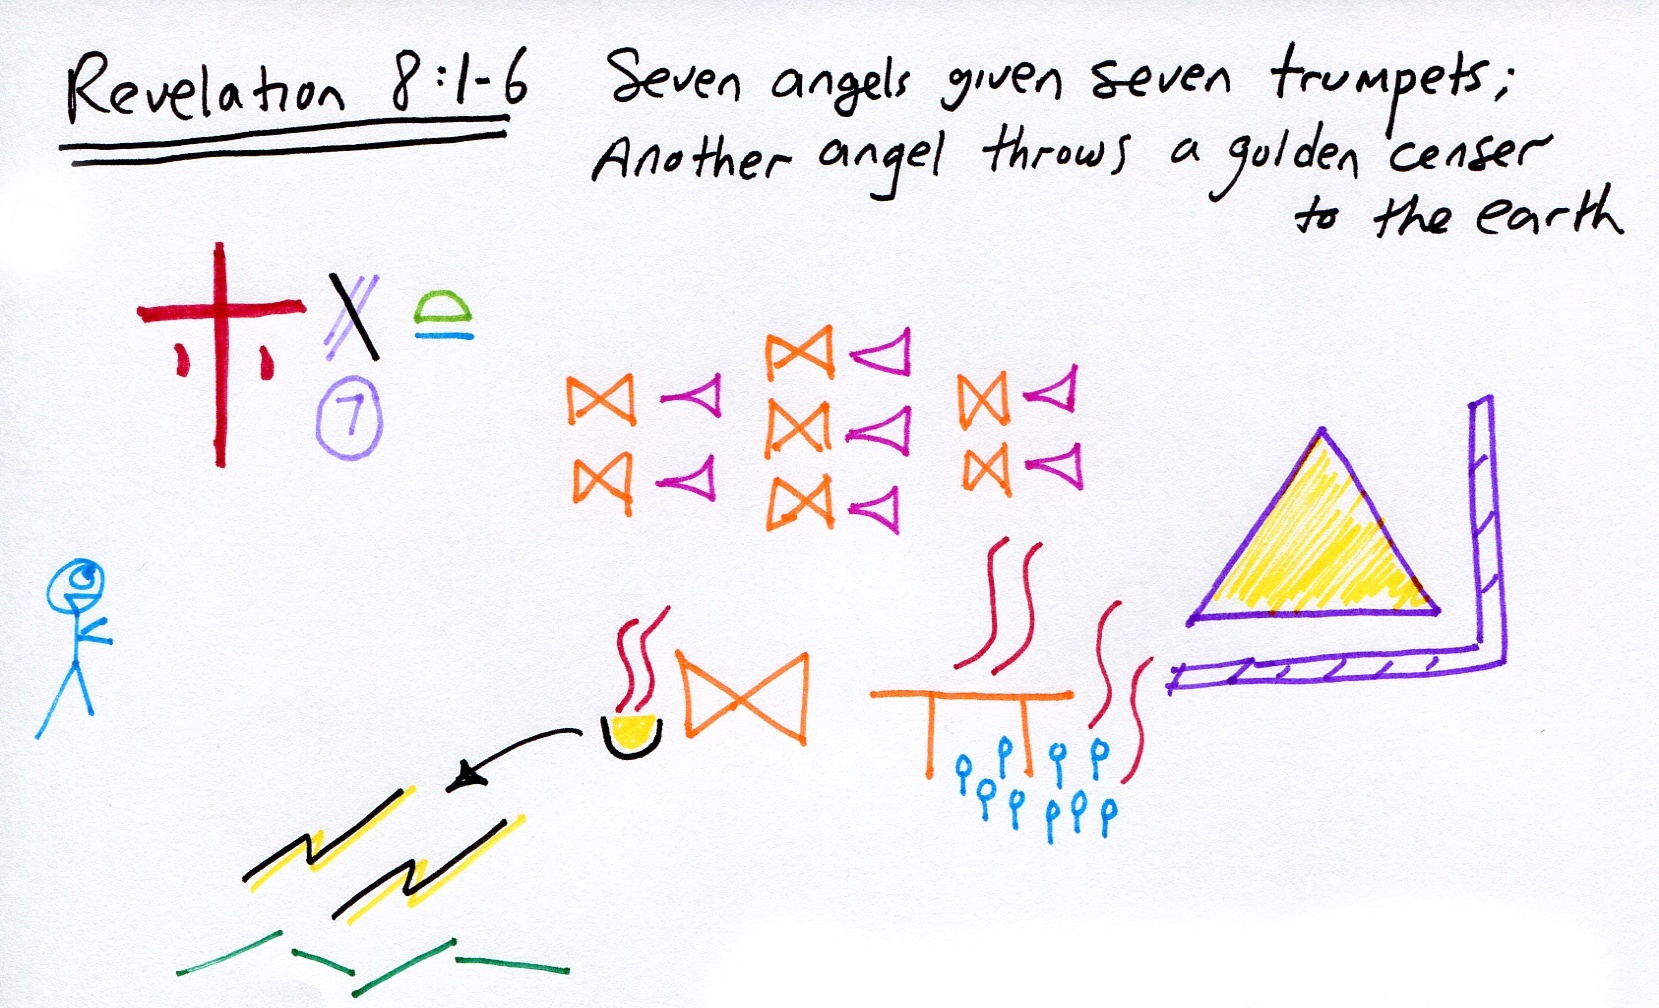 Revelation 8:1-6
Seven angels given seven trumpets;
Another angel throws a golden censer
to the earth
7